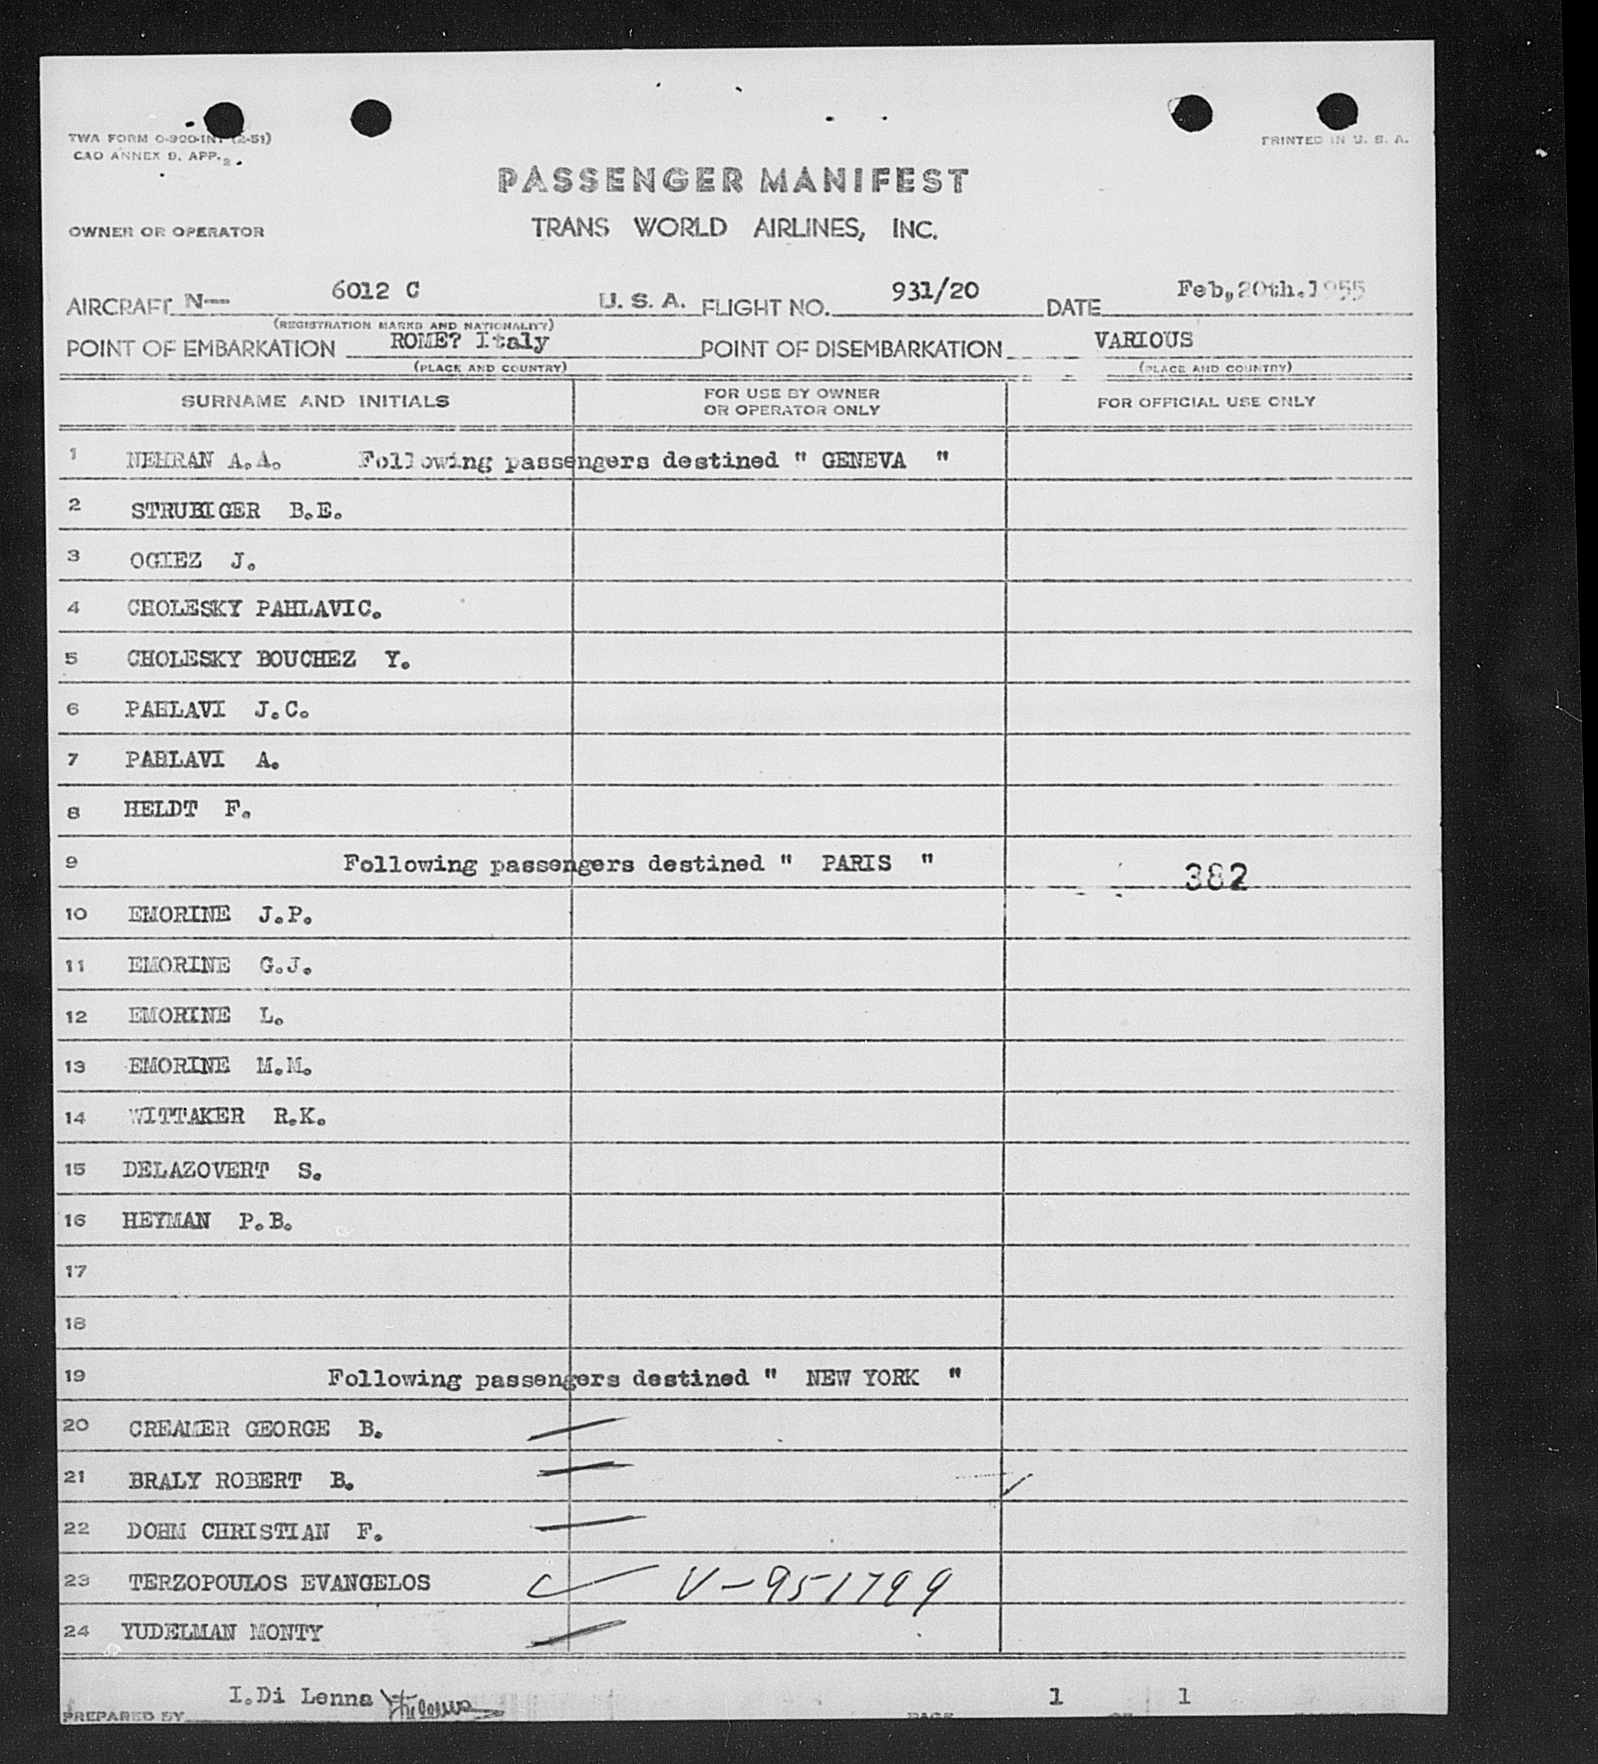 TWA FORM O-900-INT (2-51)
CAO ANNEX 9, APP. 2
PRINTED IN U. S. A.
PASSENGER MANIFEST
OWNER OR OPERATOR
TRANS WORLD AIRLINES, INC.
AIRCRAFT N— 6012 C U. S. A. FLIGHT NO. 931/20 DATE Feb,20th.1955
(REGISTRATION MARKS AND NATIONALITY)
POINT OF EMBARKATION ROME? Italy POINT OF DISEMBARKATION VARIOUS
(PLACE AND COUNTRY) (PLACE AND COUNTRY)
SURNAME AND INITIALS FOR USE BY OWNER OR OPERATOR ONLY FOR OFFICIAL USE ONLY
1 NEHRAN A.A. Following passengers destined " GENEVA "
2 STRUBIGER B.E.
3 OGIEZ J.
4 CHOLESKY PAHLAVIC.
5 CHOLESKY BOUCHEZ Y.
6 PAHLAVI J.C.
7 PAHLAVI A.
8 HELDT F.
9 Following passengers destined " PARIS " 382
10 EMORINE J.P.
11 EMORINE G.J.
12 EMORINE L.
13 EMORINE M.M.
14 WITTAKER R.K.
15 DELAZOVERT S.
16 HEYMAN P.B.
17
18
19 Following passengers destined " NEW YORK "
20 CREAMER GEORGE B.
21 BRALY ROBERT B.
22 DOHM CHRISTIAN F.
23 TERZOPOULOS EVANGELOS V-951799
24 YUDELMAN MONTY
I.Di Lenna 1 1
PREPARED BY PAGE OF